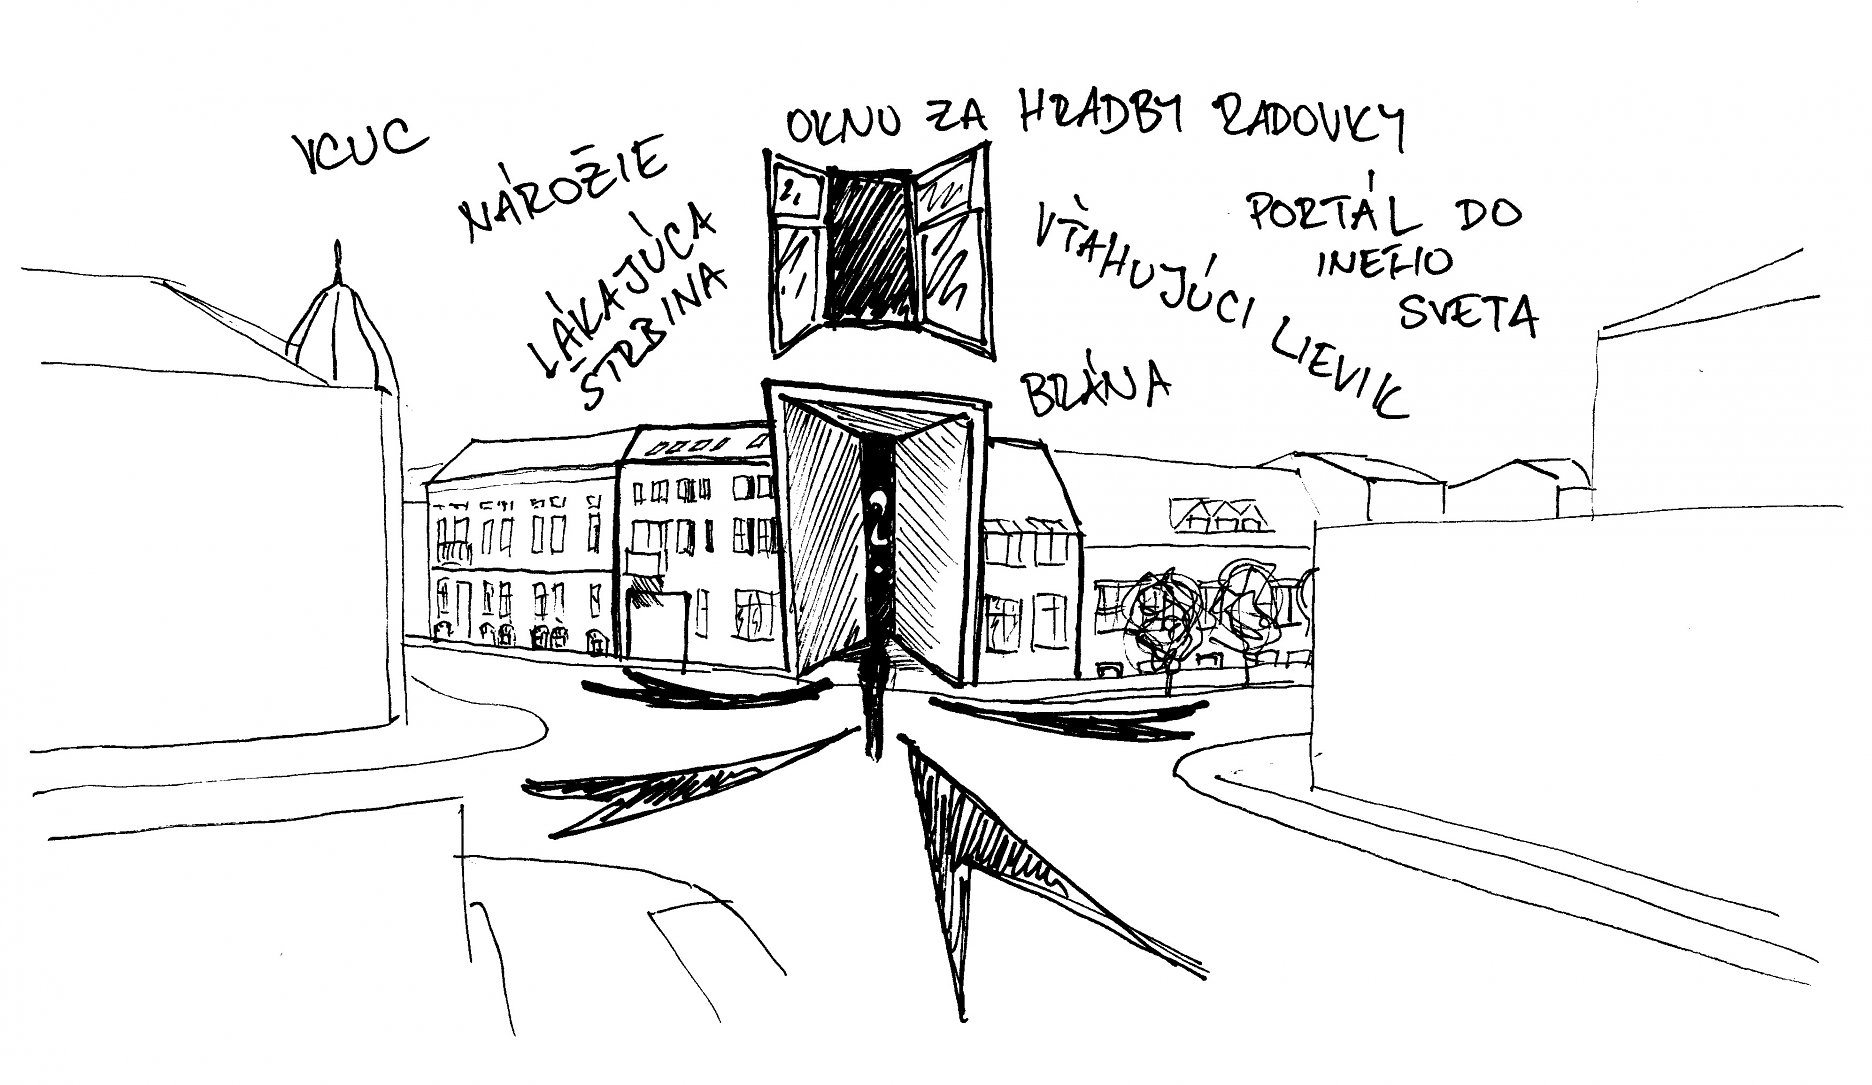 VCUC
NÁROŽIE
LÁKAJÚCA
ŠTRBINA
OKNO ZA HRADBY RADOVKY
VŤAHUJÚCI LIEVIK
PORTÁL DO
INÉHO
SVETA
BRÁNA
?